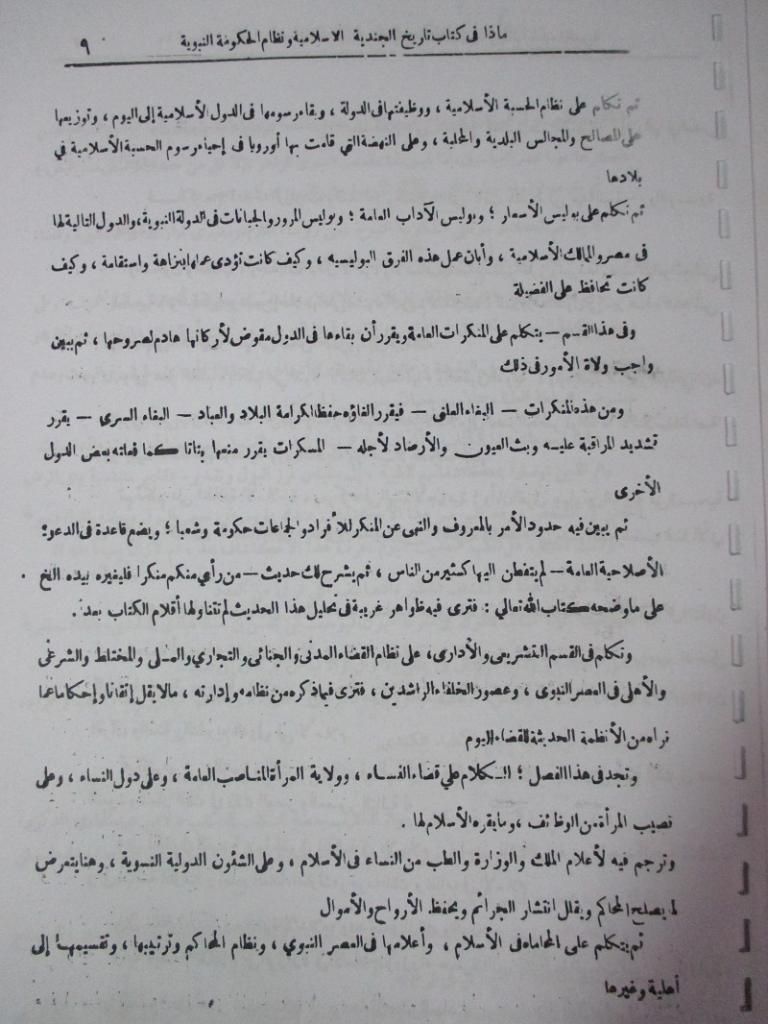 ماذا فى كتاب تاريخ الجندية الاسلامية ونظام الحكومة النبوية ٩
ثم تكلم على نظام الحسبة الأسلامية ، ووظيفتها فى الدولة ، وبقاء رسومها فى الدول الأسلامية إلى اليوم ، وتوزيعها
على المصالح والمجالس البلدية والمحلية ، وعلى النهضة التي قامت بها أوروبا فى إحياء رسوم الحسبة الأسلامية في
بلادها
ثم تكلم على بوليس الأسعار ؛ وبوليس الآداب العامة ؛ وبوليس المرور والجبانات فى الدولة النبوية ، والدول التالية لها
فى مصر والممالك الأسلامية ، وأبان عمل هذه الفرق البوليسيه ، وكيف كانت تؤدى عملها بنزاهة واستقامة ، وكيف
كانت تحافظ على الفضيلة
وفى هذا القسم — يتكلم على المنكرات العامة ويقرر أن بقاءها فى الدول مقوض لأركانها هادم لصروحها ، ثم يبين
واجب ولاة الأمور فى ذلك
ومن هذه المنكرات — البغاء العلنى — فيقرر الغاؤه حفظا لكرامة البلاد والعباد — البغاء السرى — يقرر
تشديد المراقبة عليه وبث العيون والأرصاد لأجله — المسكرات يقرر منعها بتاتا كما فعلته بعض الدول
الأخرى
ثم يبين فيه حدود الأمر بالمعروف والنهى عن المنكر للأفراد والجماعات حكومة وشعبا ؛ ويضع قاعدة فى الدعوة
الأصلاحية العامة — لم يتفطن اليها كثير من الناس ، ثم يشرح لك حديث — من رأى منكم منكرا فليغيره بيده الخ .
على ما وضحه كتاب الله تعالي : فترى فيه ظواهر غريبة فى تحليل هذا الحديث لم تتناولها أقلام الكتاب بعد .
وتكلم فى القسم التشريعى والأدارى ، على نظام القضاء المدنى والجنائى والتجاري والمـلى والمختلط والشرعى
والأهلى فى العصر النبوى ، وعصور الخلفاء الراشدين ، فترى فيما ذكره من نظامه وإدارته ، مالا يقل إتقانا وإحكاما عما
نراه من الأنظمة الحديثة للقضاء اليوم
وتجد فى هذا الفصل ؛ الكلام علي قضاء النساء ، وولاية المرأة المناصب العامة ، وعلى دول النساء ، وعلى
نصيب المرأة من الوظائف ، وما يقره الأسلام لها .
وترجم فيه لأعلام الملك والوزارة والطب من النساء فى الأسلام ، وعلى الشئون الدولية النسوية ، وهنا يتعرض
لما يصلح المحاكم ويقلل انتشار الجرائم ويحفظ الأرواح والأموال
ثم يتكلم على المحاماه فى الأسلام ، وأعلامها فى العصر النبوي ، ونظام المحاكم وترتيبها ، وتقسيمها إلى
أهلية وغيرها